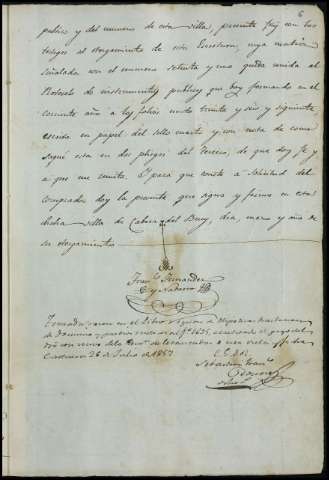 6
publico y del numero de esta villa, presente fuy con los
testigos al otorgamiento de esta Escritura, cuya matriz
señalada con el numero setenta y uno queda unida al
Protocolo de instrumentos publicos que hoy formando en el
corriente año a los folios ciento treinta y seis y siguiente
escrita en papel del sello cuarto y con nota de como
saqué esta en dos pliegos del Tercero, de que doy fe y
a que me remito. Y para que conste a solicitud del
comprador doy la presente que signo y firmo en esta
dicha villa de Cabeza del Buey, dia, mes y año de
su otorgamiento
Franco Fernandez
y Naharro
Tomada razon en el Libro
de Dominio, al fo 1625,
26 de Julio de 1857
Sebastian